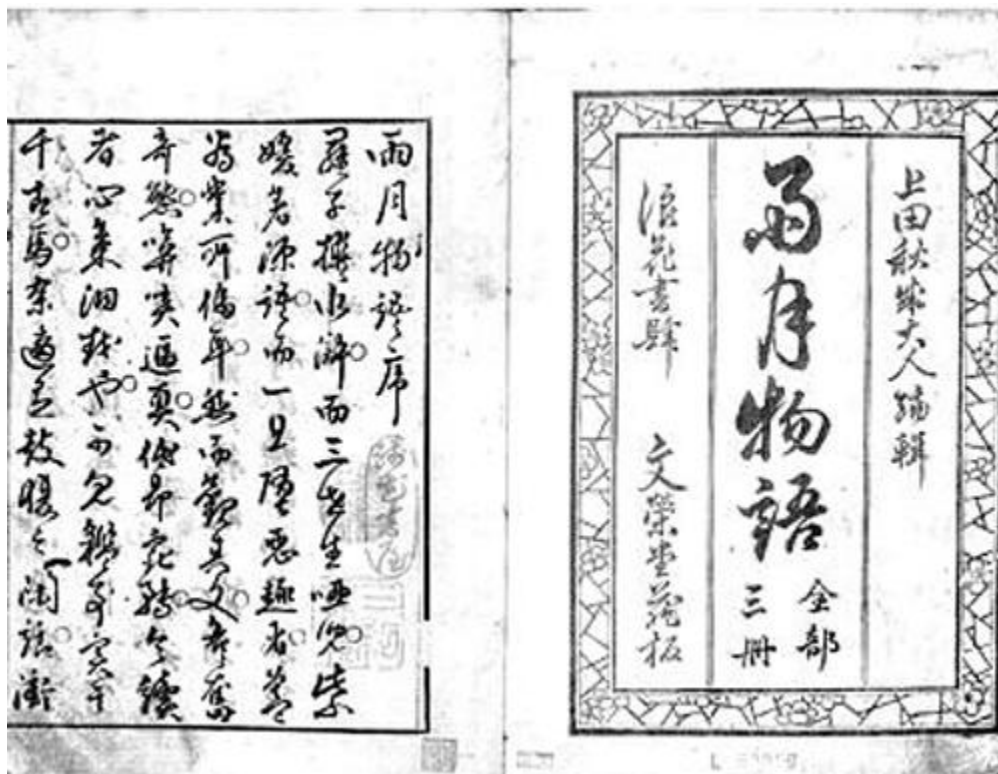 上田秋成大人編輯
雨月物語
全部
三冊
浪花書肆　文榮堂蔵板
雨月物語序
羅子撰水滸。而三世生唖児。紫
媛著源語。而一旦堕悪趣者。蓋
為業所偪耳。然而觀其文。各奮
奇態。揜哢逼真。低昂宛轉。令讀
者心氣洞越也。可見鑑事實于
千古焉。余適有鼓腹之閑話。衝